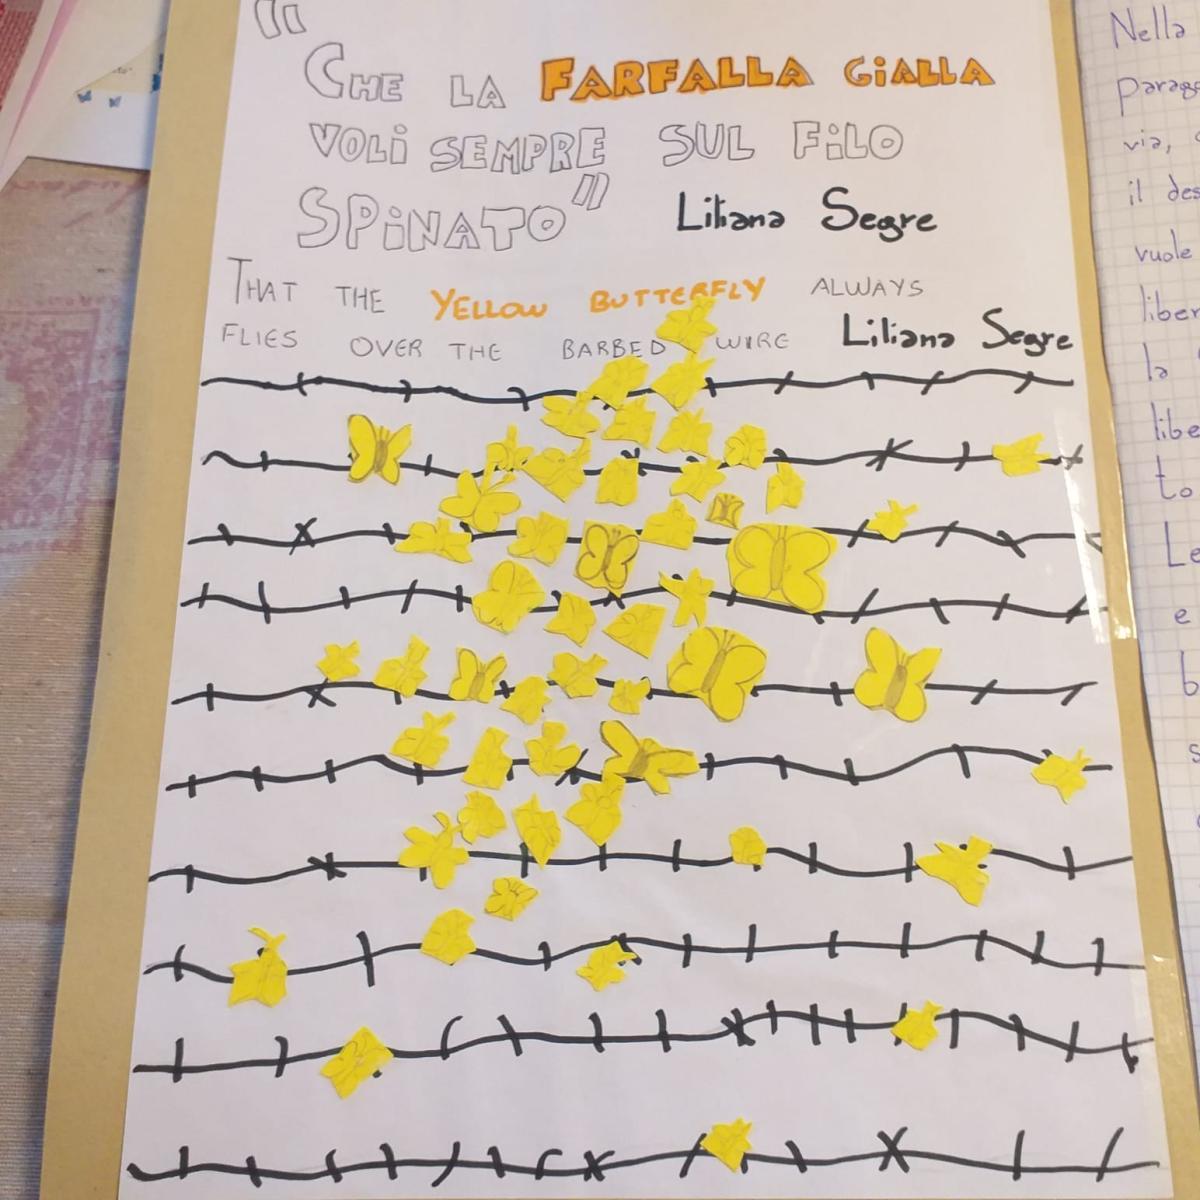 "CHE LA FARFALLA GIALLA
VOLI SEMPRE SUL FILO
SPINATO" Liliana Segre
THAT THE YELLOW BUTTERFLY ALWAYS
FLIES OVER THE BARBED WIRE Liliana Segre
Nella
via,
il
vuole
la
to
e